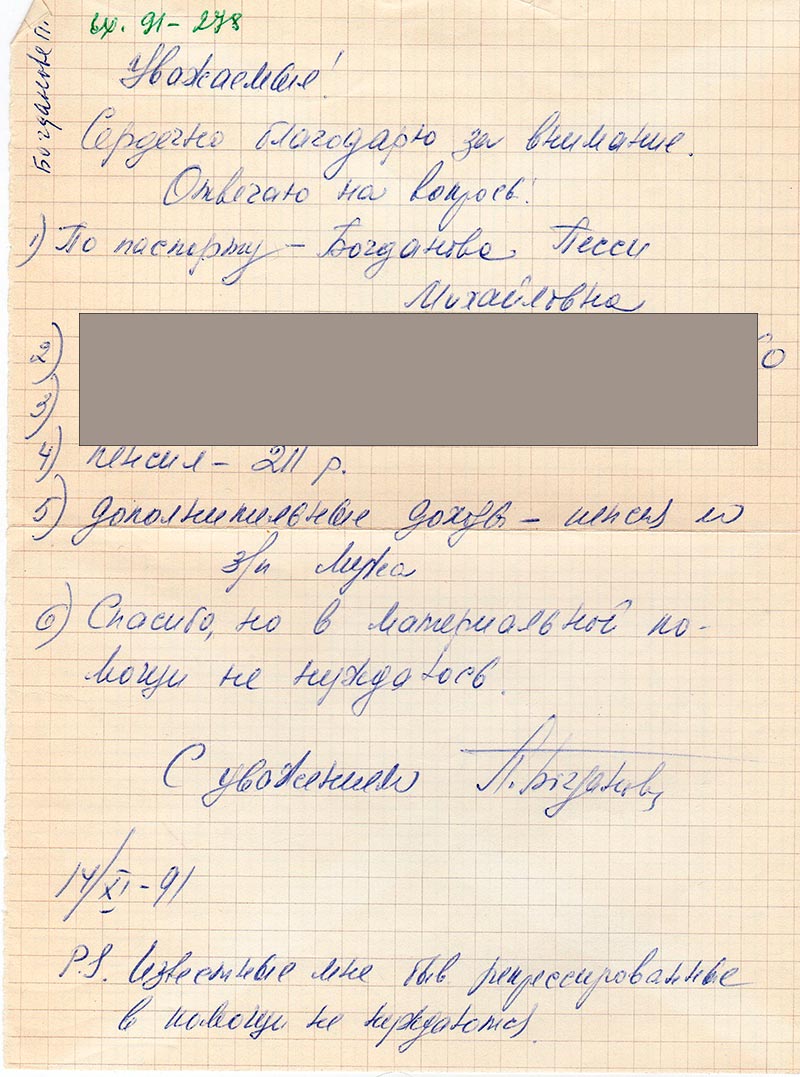 вх. 91-278
Богданове П.
Уважаемые!
Сердечно благодарю за внимание.
Отвечаю на вопросы:
1) По паспорту – Богданова Песси
Михайловна
2)
3)
4) пенсия – 211 р.
5) дополнительные доходы – пенсия и
з/п мужа
6) Спасибо, но в материальной по-
мощи не нуждаюсь.
С уважением П. Богданова
14/XI-91
P.S. Известные мне быв репрессированные
в помощи не нуждаются.